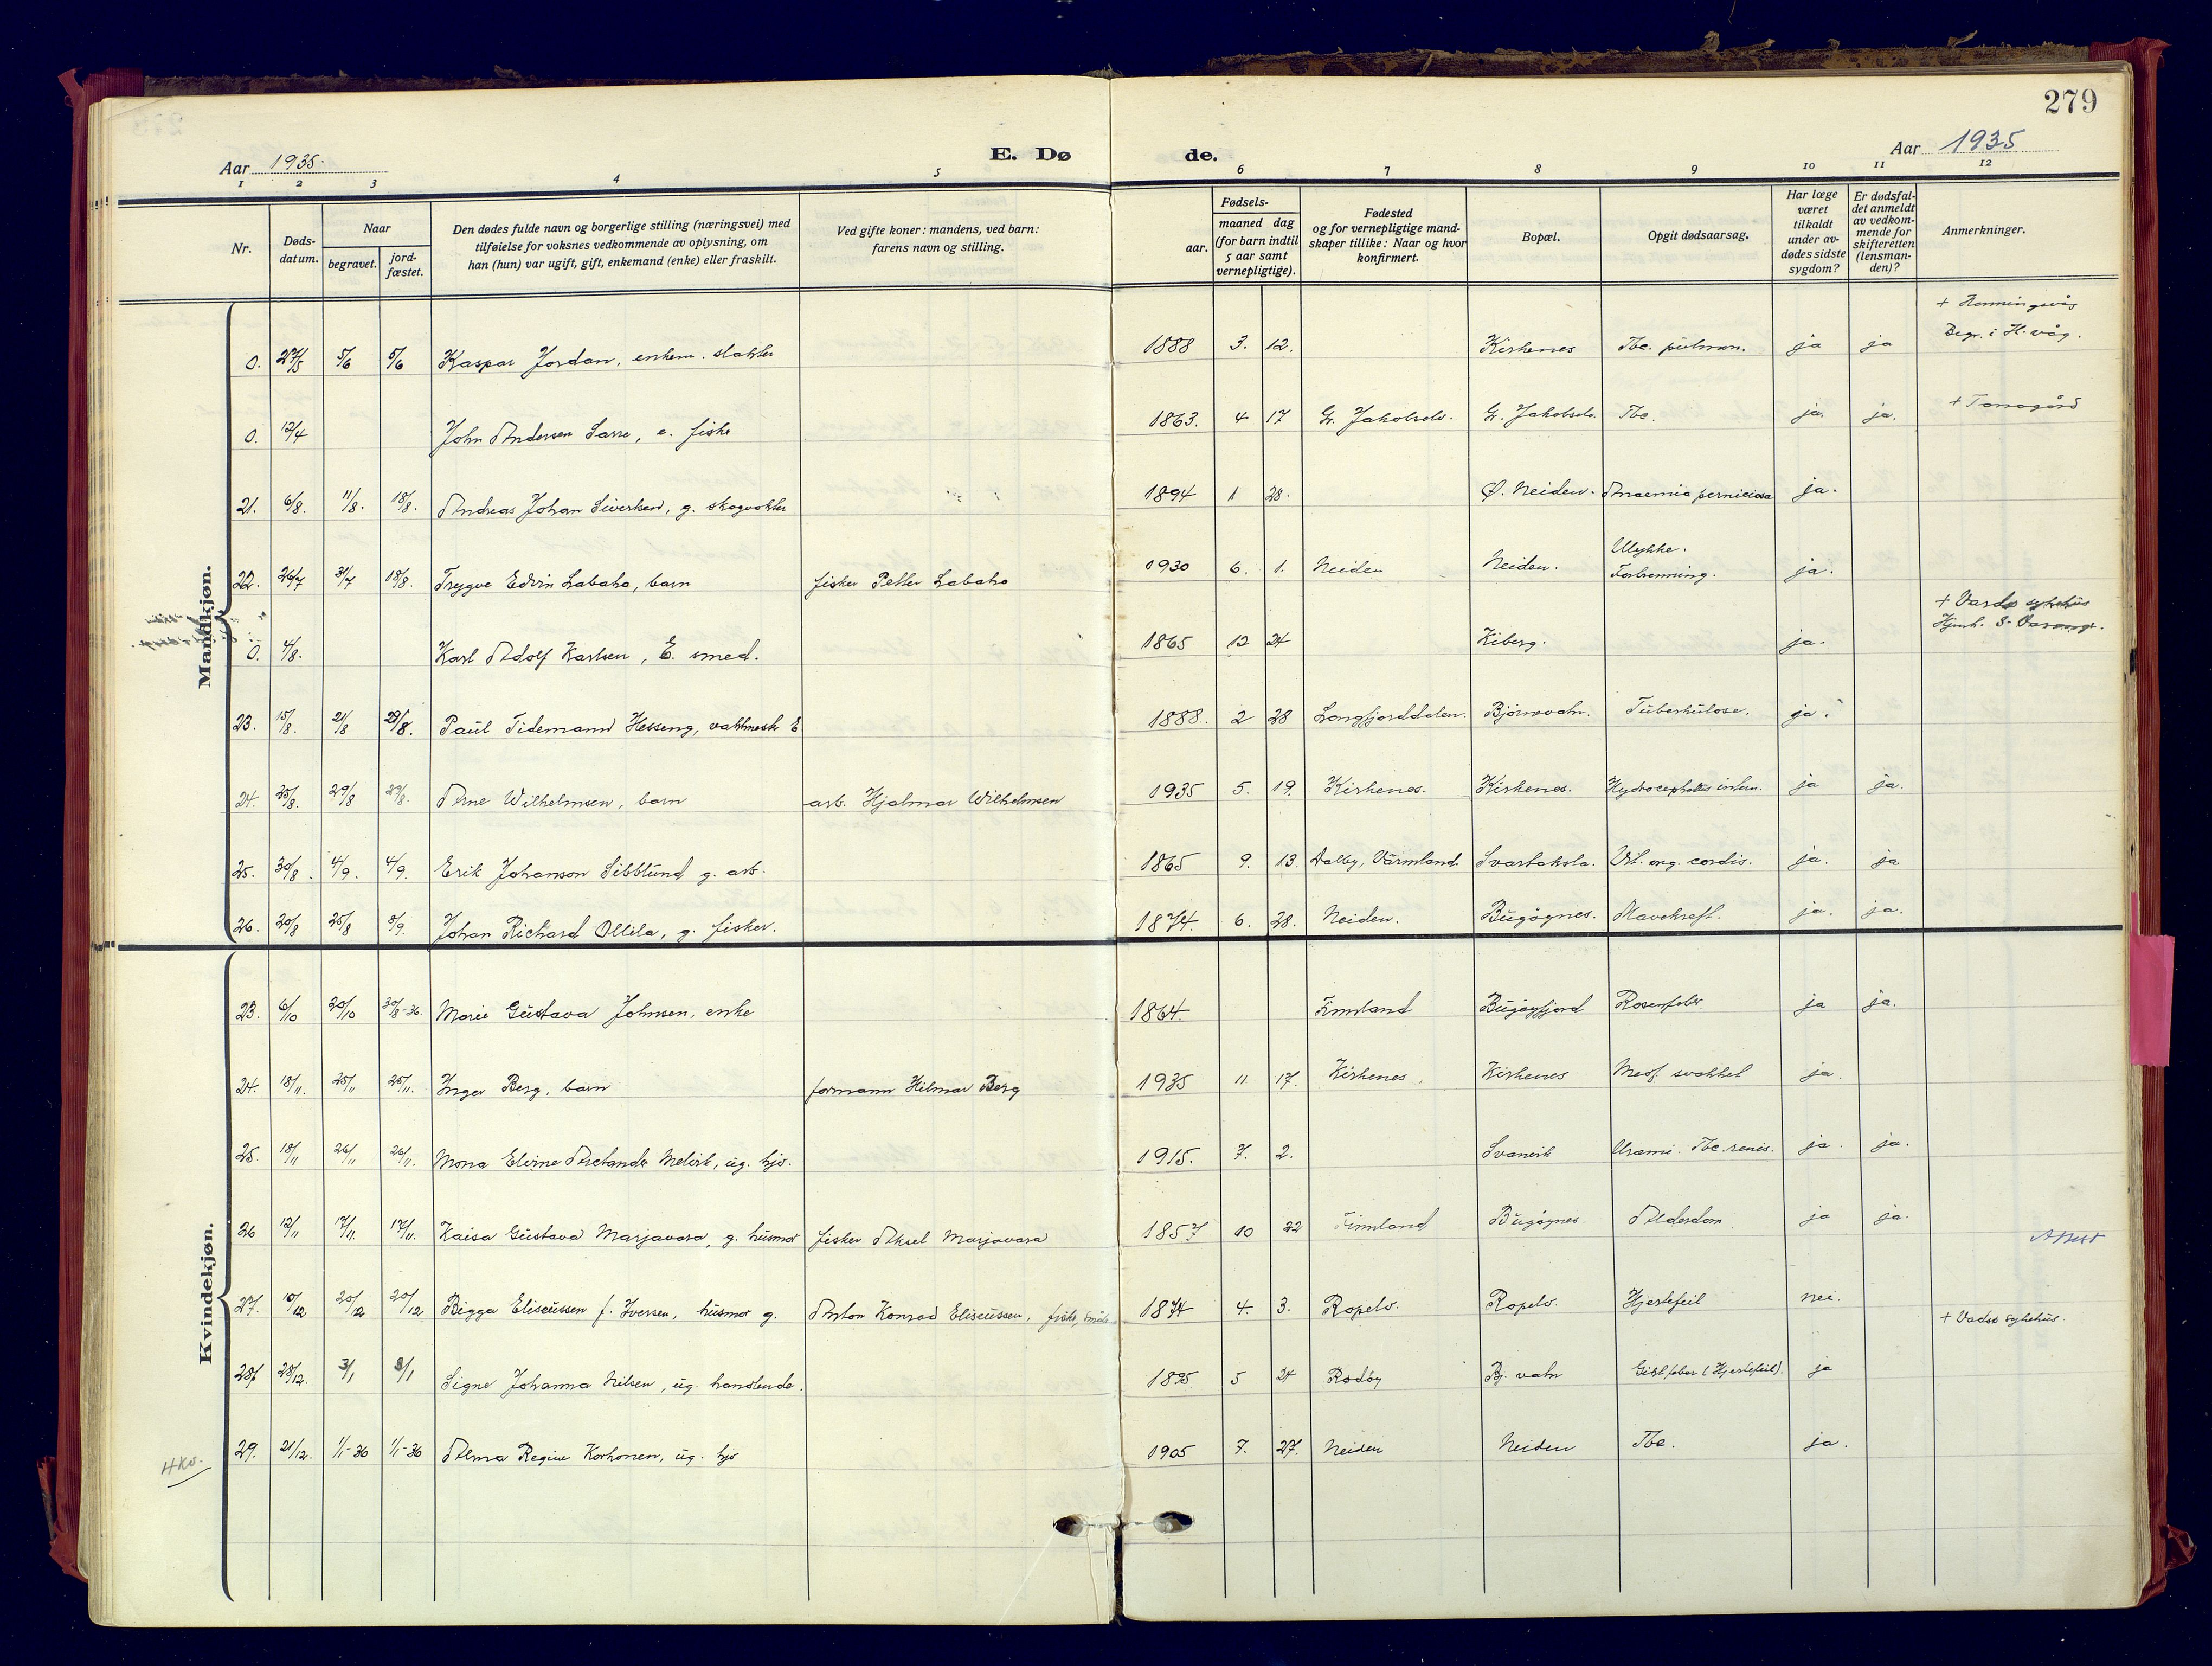 279
Aar 1935.
E. Dø de.
Aar 1935
1 2 3 4 5 6 7 8 9 10 11 12
Nr.
Døds-
datum.
Naar
begravet.
jord-
fæstet.
Den dødes fulde navn og borgerlige stilling (næringsvei) med
tilføielse for voksnes vedkommende av oplysning, om
han (hun) var ugift, gift, enkemand (enke) eller fraskilt.
Ved gifte koner: mandens, ved barn:
farens navn og stilling.
Fødsels-
aar.
maaned dag
(for barn indtil
5 aar samt
vernepligtige).
Fødested
og for vernepligtige mand-
skaper tillike: Naar og hvor
konfirmert.
Bopæl.
Opgit dødsaarsag.
Har læge
været
tilkaldt
under av-
dødes sidste
sygdom?
Er dødsfal-
det anmeldt
av vedkom-
mende for
skifteretten
(lensman-
den)?
Anmerkninger.
Mandkjøn.
+ Honningsvåg
Begr. i H. våg.
0. 27/5 5/6 5/6 Kaspar Jordan, enkem. slakter 1888 3. 12. Kirkenes Tbc. pulmon. ja ja
0. 12/4 John Andersen Sarre, e. fisker 1863. 4 17 Gr. Jakobselv. Gr. Jakobselv. Tbc. ja. ja.
21. 6/8. 11/8. 18/8. Andreas Johan Sivertsen, g. skogvokter 1894 1 28. Ø. Neiden. Anaemia perniciosa ja.
22. 26/7 31/7 18/8. Trygve Edvin Labaho, barn fisker Petter Labaho 1930 6. 1. Neiden Neiden. Ulykke. Forbrenning. ja.
+ Vardø sykehus
0. 4/8. Karl Adolf Karlsen, E. smed. 1865 12 24 Kiberg. ja. Hjmh. S-Varang.
23. 15/8. 21/8 29/8. Paul Tidemann Hesseng, vaktmester E 1888. 2 28 Langfjorddalen. Bjørnevatn. Tuberkulose. ja.
24. 25/8. 29/8 29/8. Arne Wilhelmsen, barn arb. Hjalmar Wilhelmsen 1935 5. 19. Kirkenes. Kirkenes. Hydrocephalus intern. ja ja.
25. 30/8. 4/9. 4/9. Erik Johanson Sibblund g. arb. 1865 9. 13. Dalby, Värmland. Svartaksla. Vit. org. cordis. ja. ja
26. 20/8 25/8 8/9. Johan Richard Ollila, g. fisker. 1874. 6. 28. Neiden. Bugøynes. Mavekreft. ja. ja.
Kvindekjøn.
23. 6/10 20/10 30/8-36. Marie Gustava Johnsen, enke 1864. Finnland Bugøyfjord Rosenfeber ja ja.
24. 18/11. 25/11 25/11. Inger Berg, barn formann Hilmar Berg 1935 11 17. Kirkenes. Kirkenes Medf. svakhet ja.
25. 18/11 26/11 26/11. Mona Elvine Arctander Melvik, ug. hjv. 1915. 7. 2. Svanvik Urami. Tbc. renis. ja. ja.
26 12/11 17/11. 17/11. Kaisa Gustava Marjavara, g. husmor fisker Aksel Marjavara 1857 10 22 Finnland Bugøynes Alderdom ja ja.
Attest
27. 10/12 20/12 20/12 Bigga Eliseussen f. Iversen, husmor g. Anton Konrad Eliseussen, fisker, småbr. 1874 4. 3. Ropelv. Ropelv. Hjertefeil nei. + Vadsø sykehus.
28. 28/12. 3/1 3/1 Signe Johanna Nilsen, ug. handlende. 1895 5 24 Rødøy Bj. vatn Giktfeber (Hjertefeil). ja
29. 21/12. 1/1-36 1/1-36 Alma Regine Korhonen, ug. hjv 1905 7. 27. Neiden Neiden Tbc. ja.